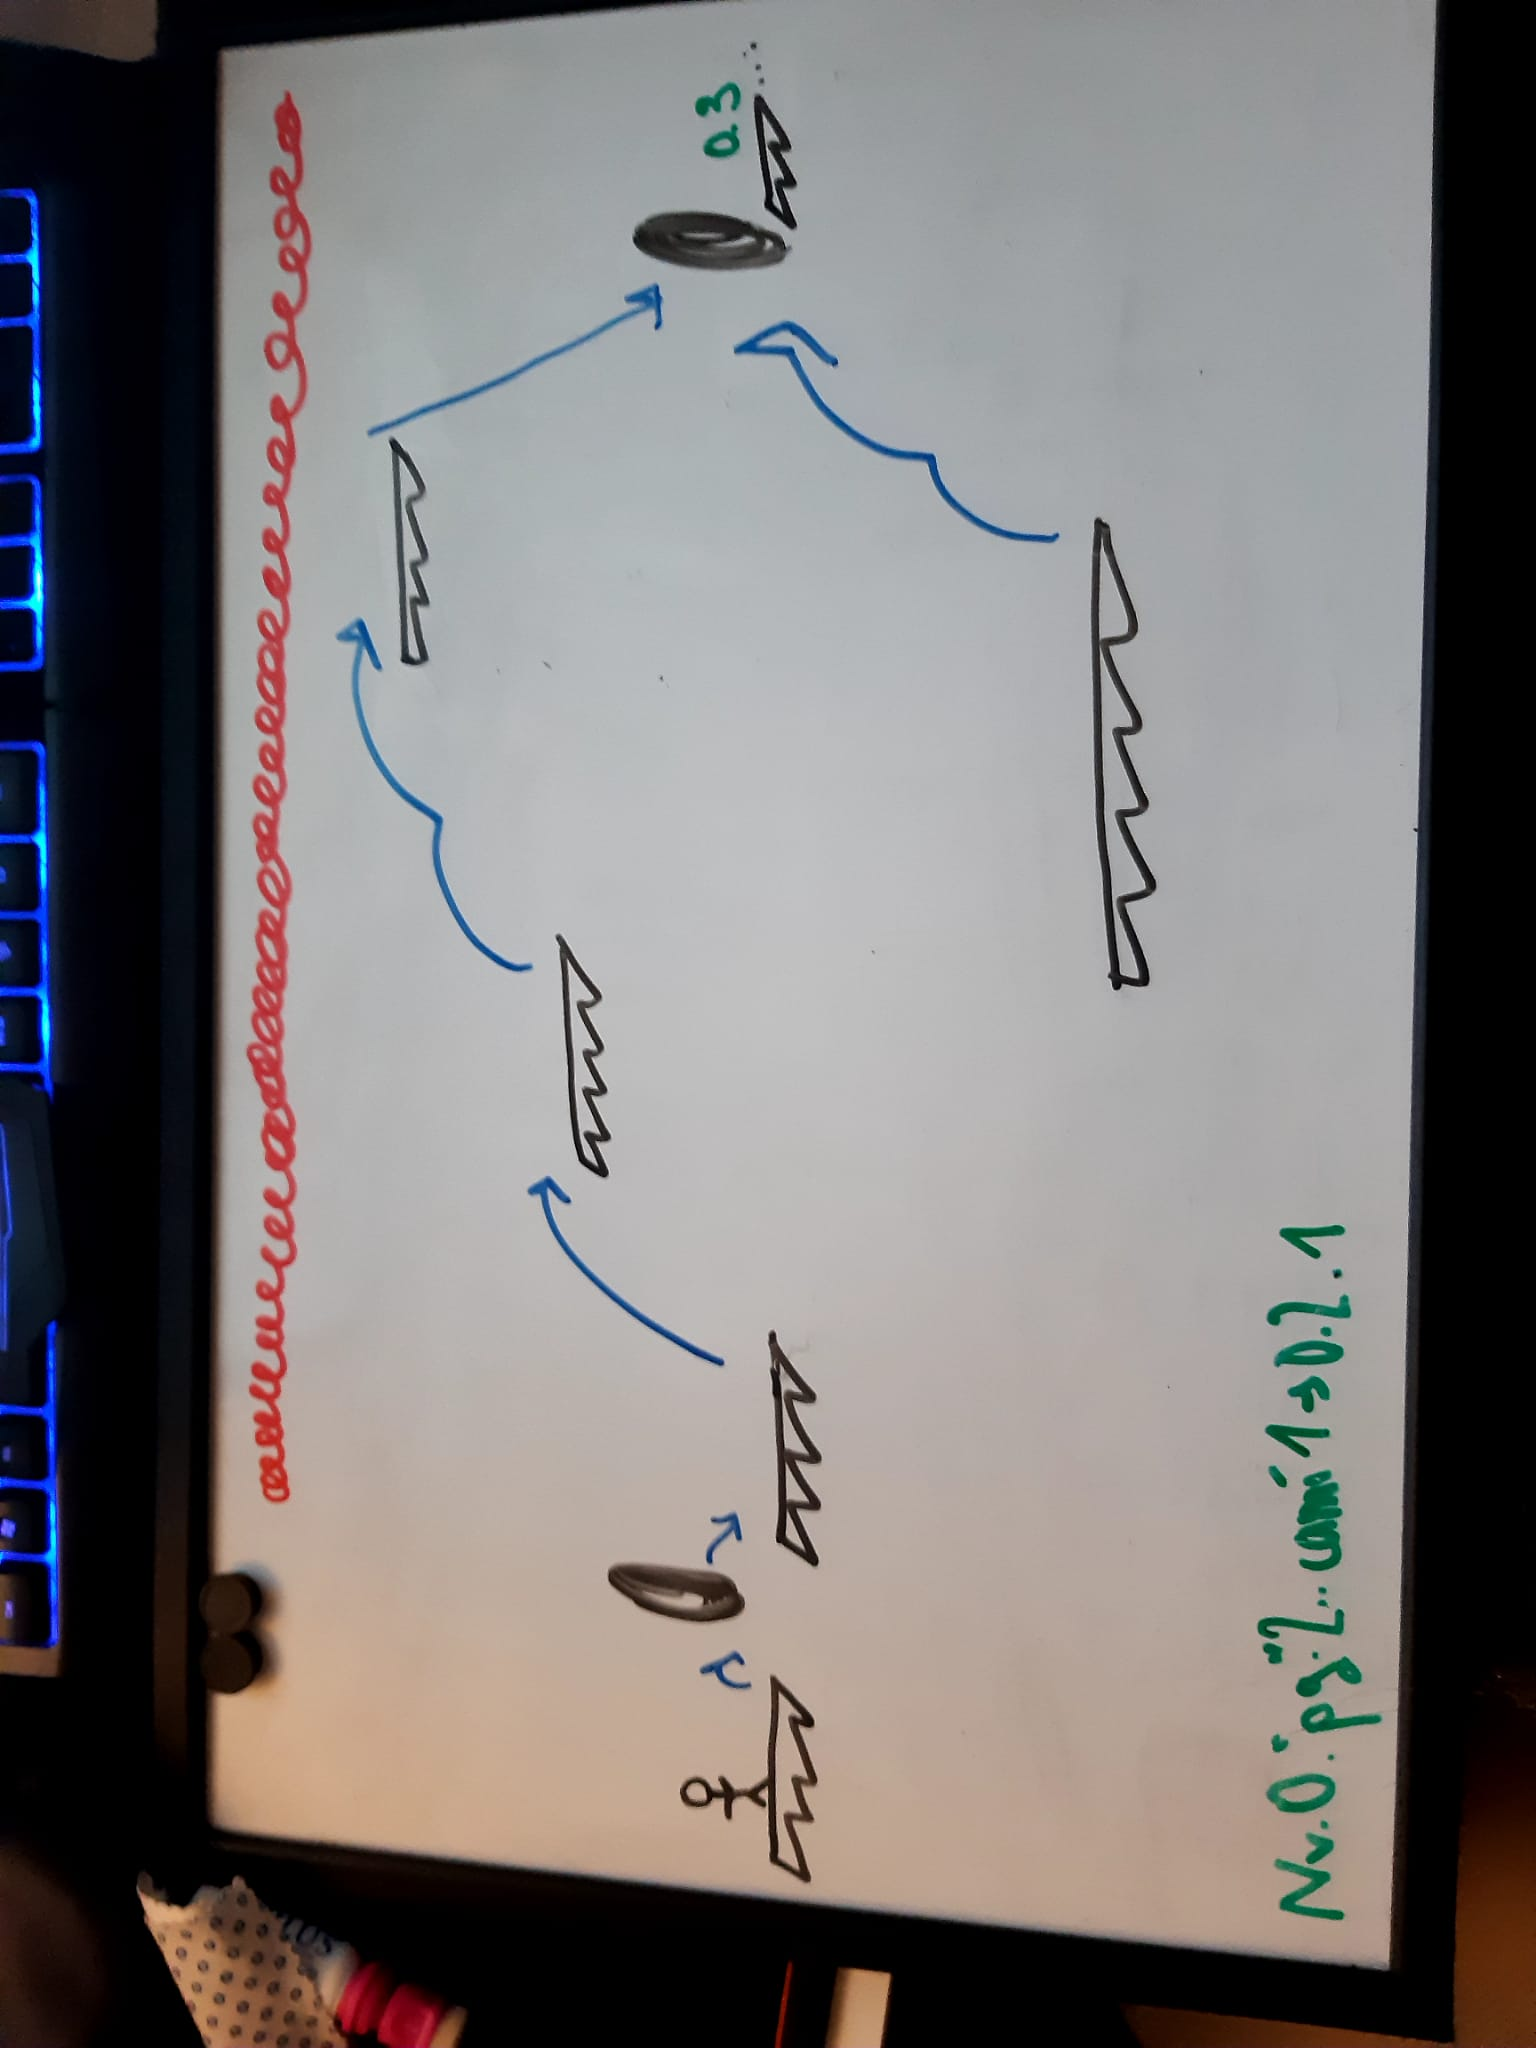 0.3 ...
Nv.0. pg."2.. camí 1 → 0.2.1